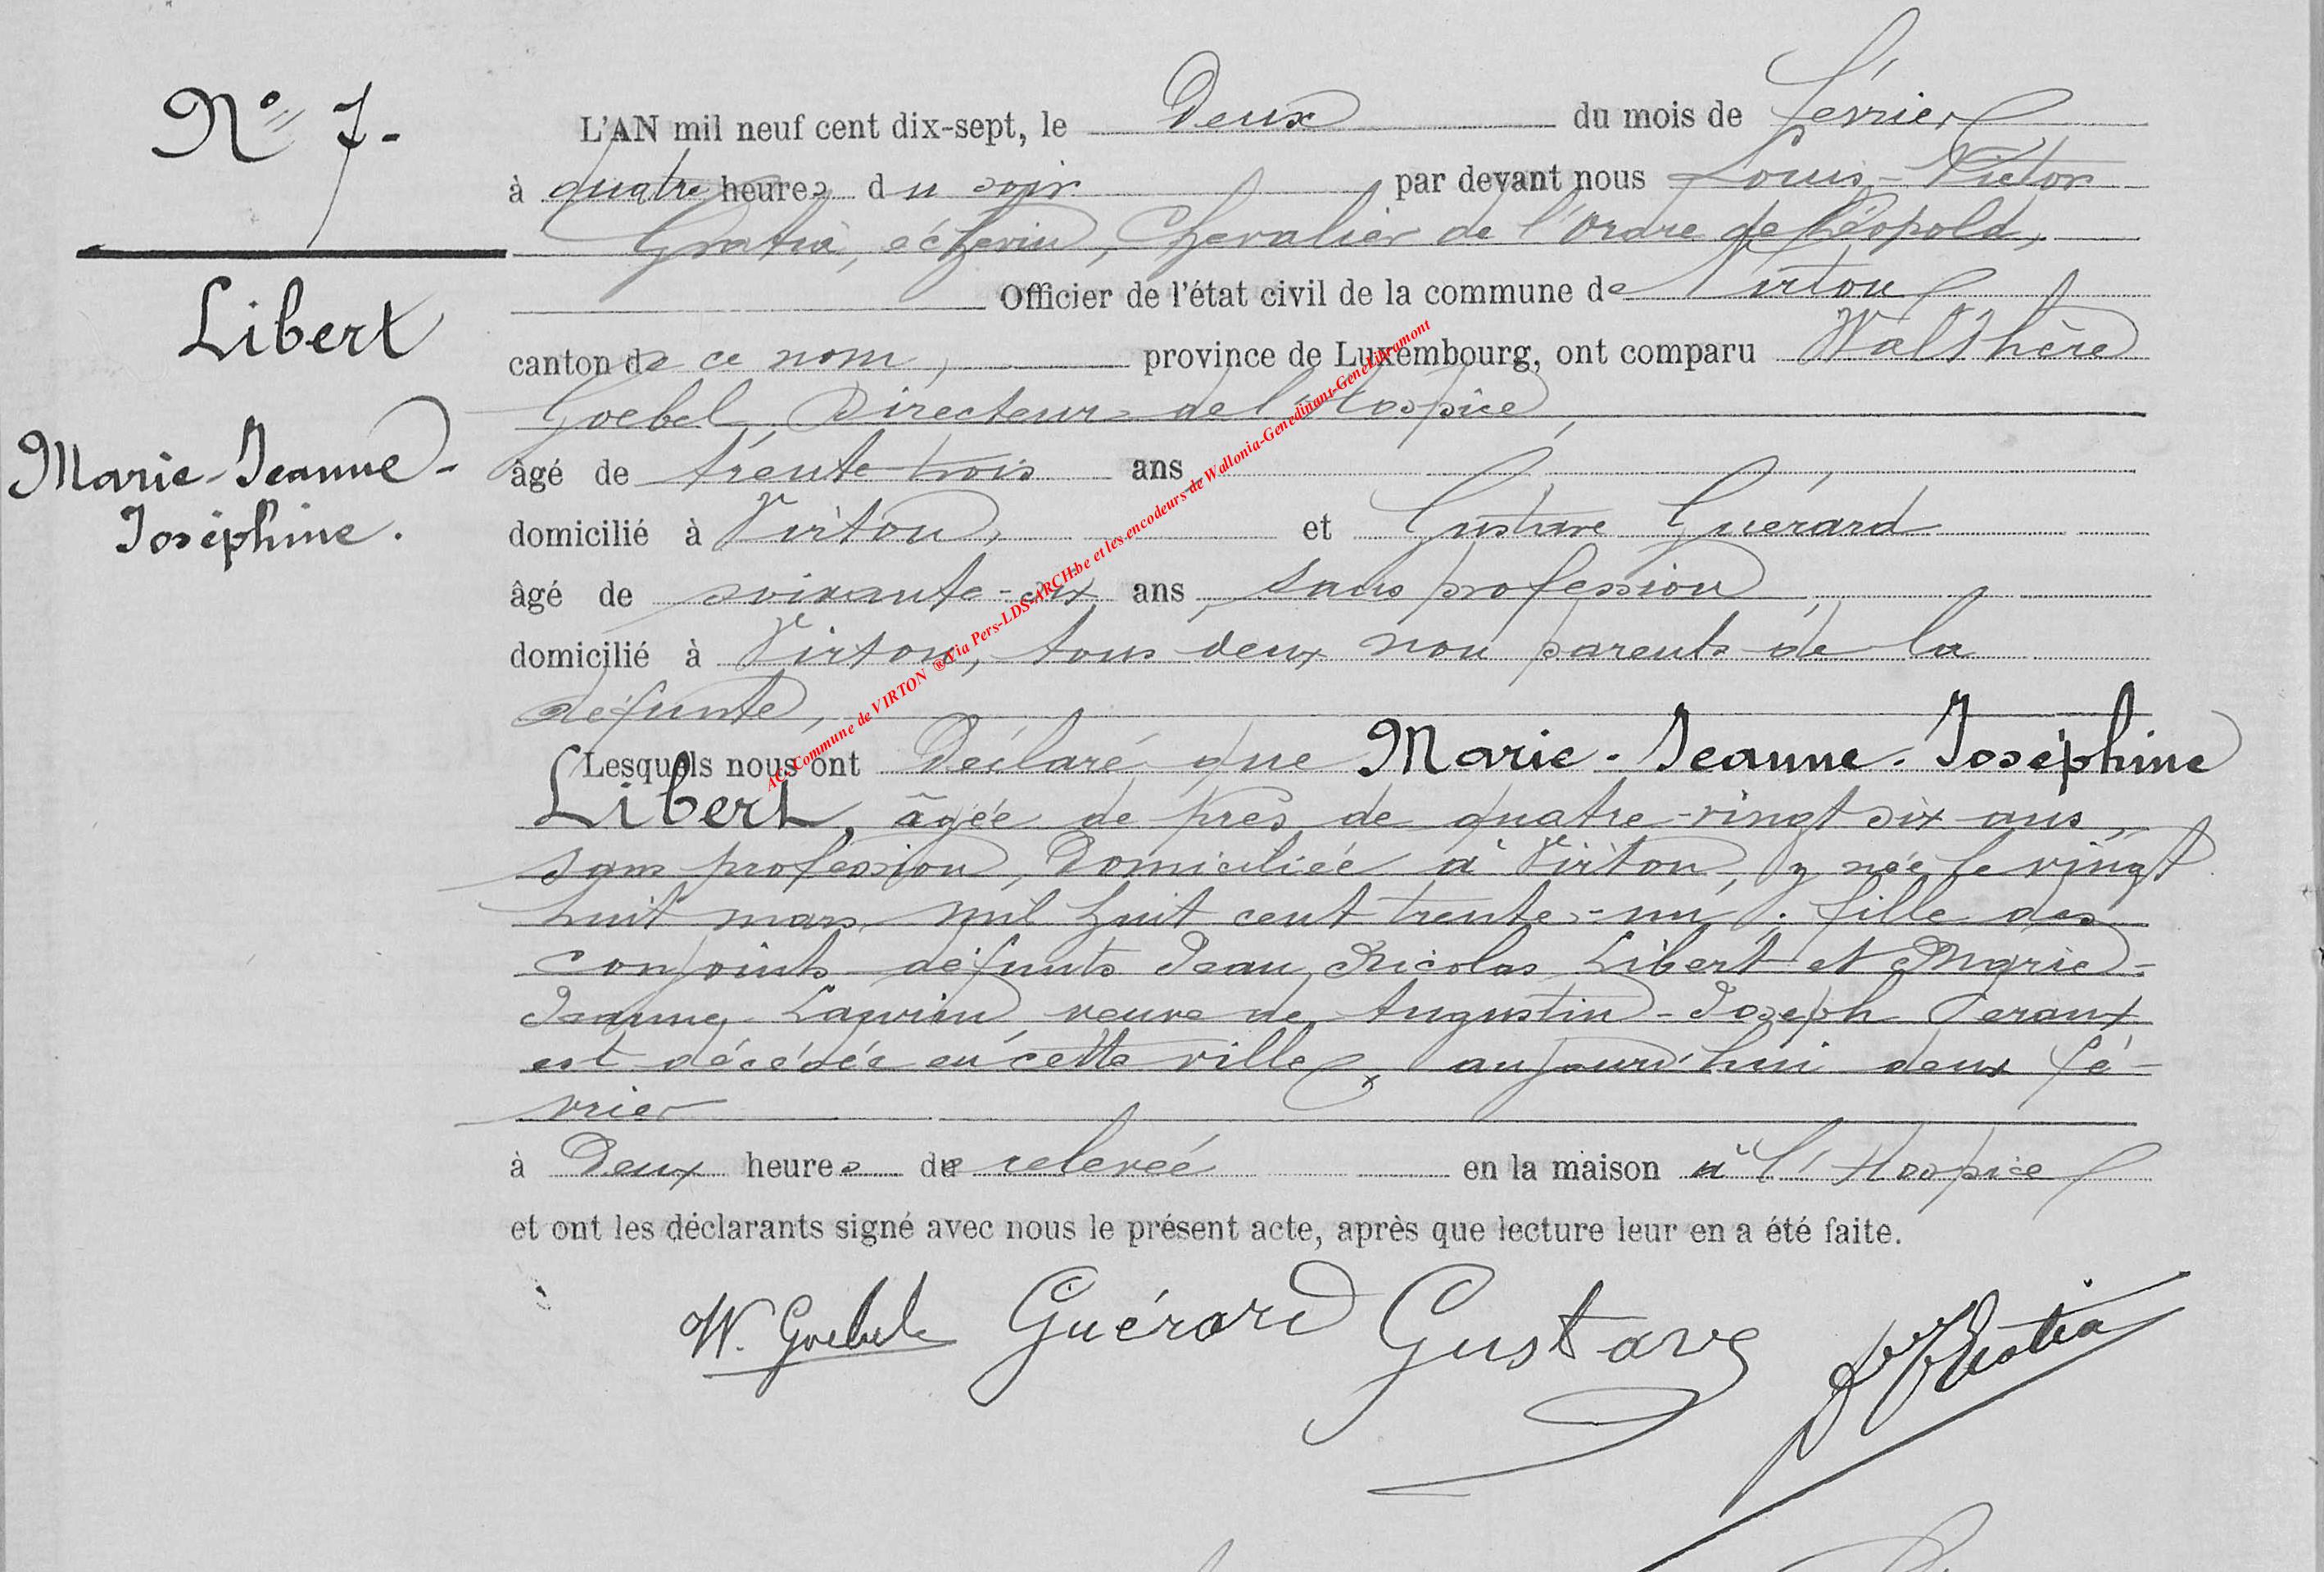 N° 7-
Libert
Marie-Jeanne-
Joséphine.
L'AN mil neuf cent dix-sept, le Deux du mois de février
à quatre heures du soir par devant nous Louis-Victor
Gratia, échevin, Chevalier de l'Ordre de Léopold,
Officier de l'état civil de la commune de Virton
canton de ce nom, province de Luxembourg, ont comparu Walthère
Goebel, Directeur de l'Hospice,
âgé de trente-trois ans,
domicilié à Virton, et Gustave Guérard
âgé de soixante-six ans, sans profession,
domicilié à Virton, tous deux non parents de la
défunte,
Lesquels nous ont Déclaré que Marie-Jeanne-Joséphine
Libert, âgée de près de quatre-vingt six ans,
sans profession, Domiciliée à Virton, y née le vingt
huit mars mil huit cent trente-un; fille des
conjoints défunts Jean Nicolas Libert et Marie-
Jeanne veuve de Augustin-Joseph
est décédée en cette ville, aujourd'hui deux fé-
vrier
à Deux heures de relevée en la maison à l'Hospice
et ont les déclarants signé avec nous le présent acte, après que lecture leur en a été faite.
W. Goebel Guérard Gustave LVGratia
AC. Commune de VIRTON ® Via Pers-LDS-ARCH.be et les encodeurs de Wallonia-Genedinant-GeneLibramont